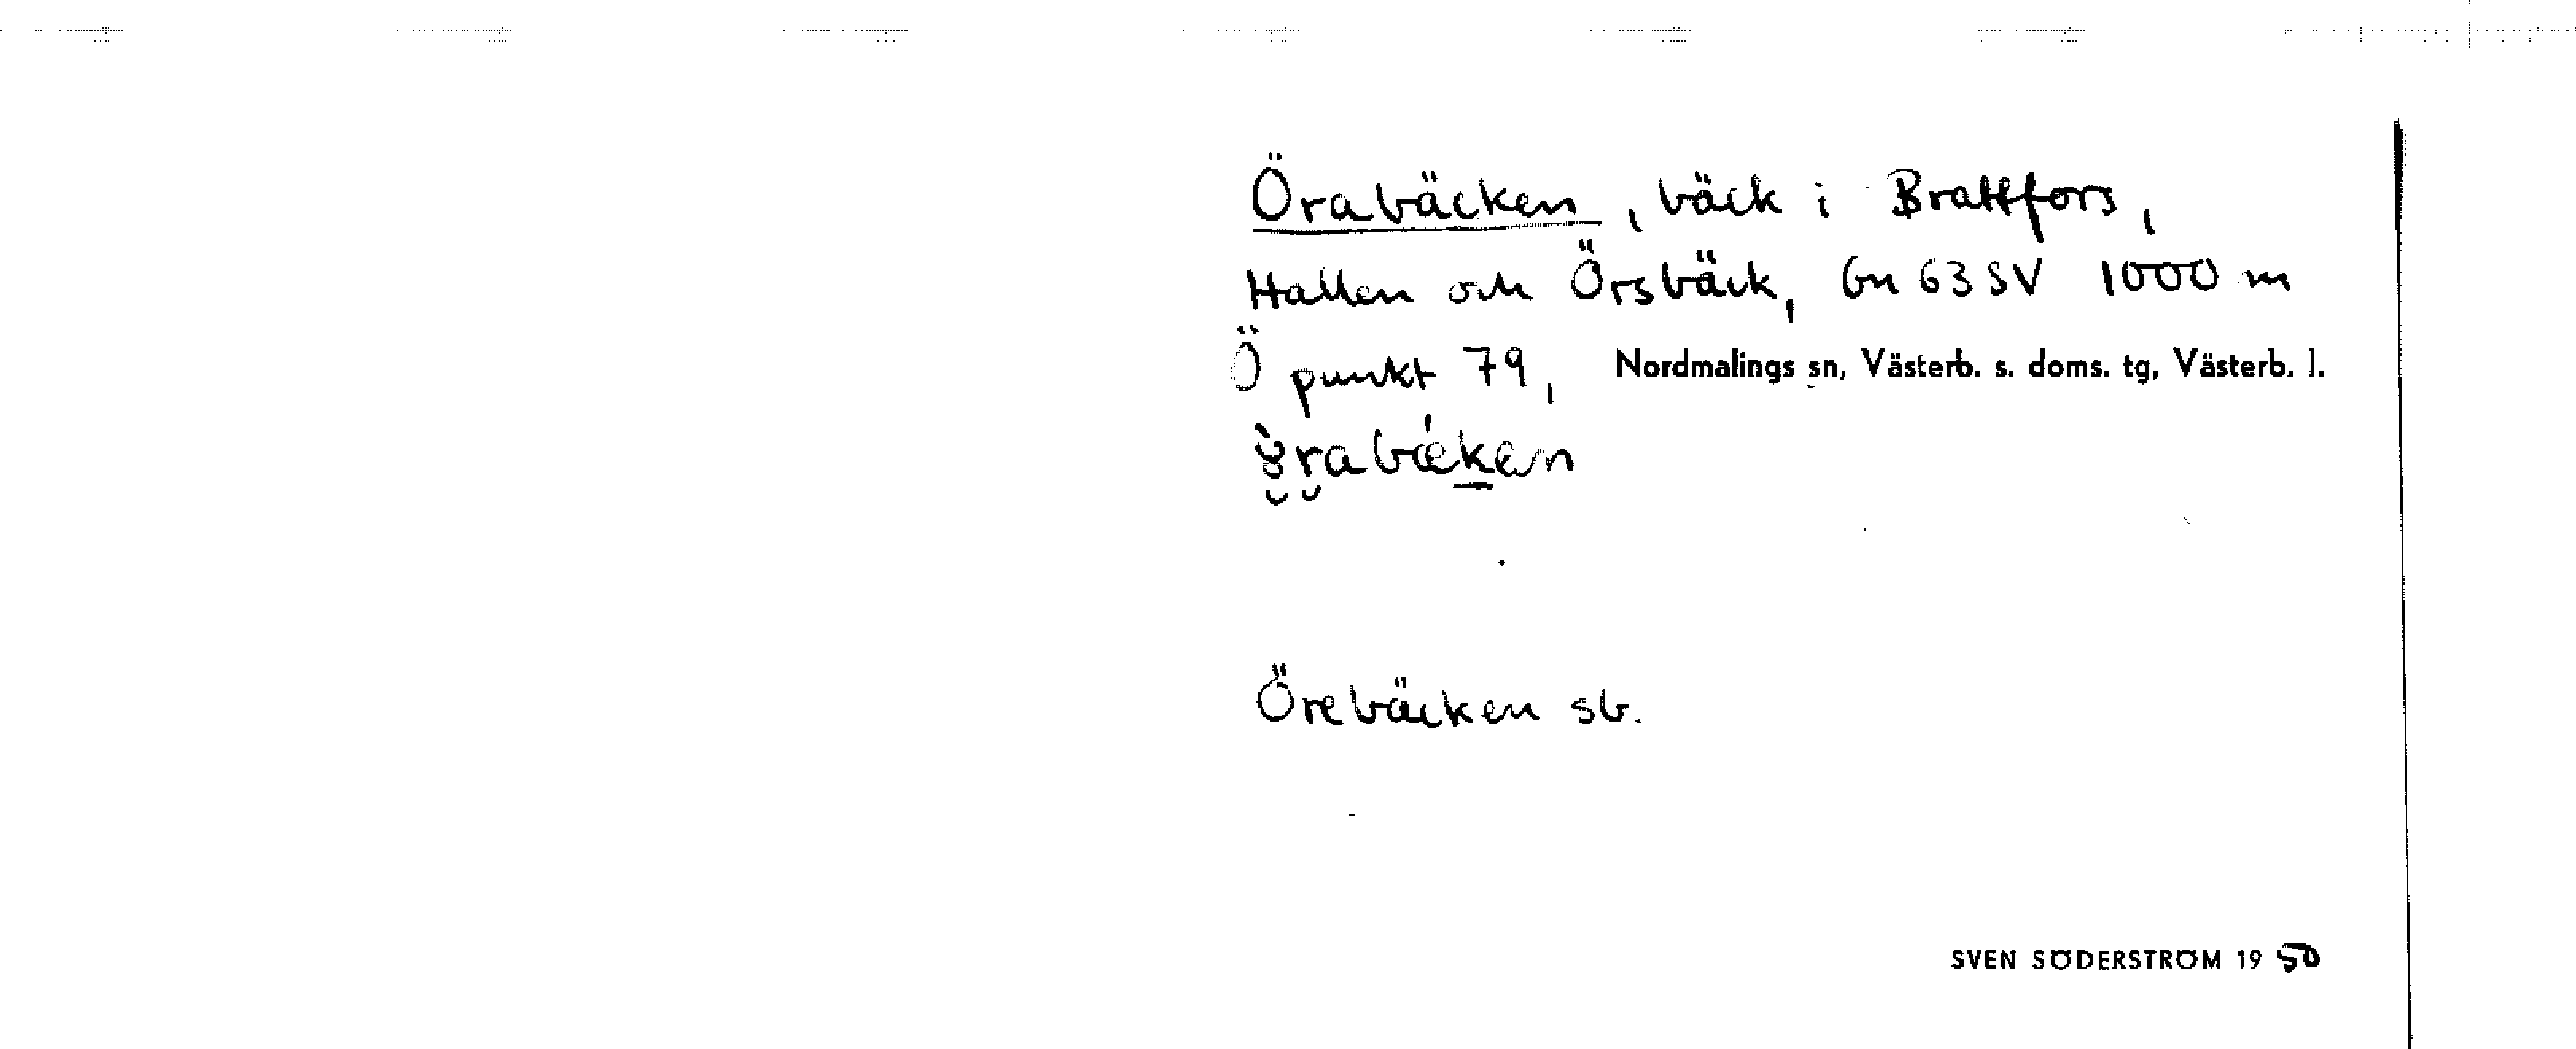 Örabäcken, bäck i Brattfors,
Hallen och Örsbäck, Gn 63 SV 1000 m
Ö punkt 79, Nordmalings sn, Västerb. s. doms. tg, Västerb. l.
Örebäcken sb.
SVEN SÖDERSTRÖM 19 50